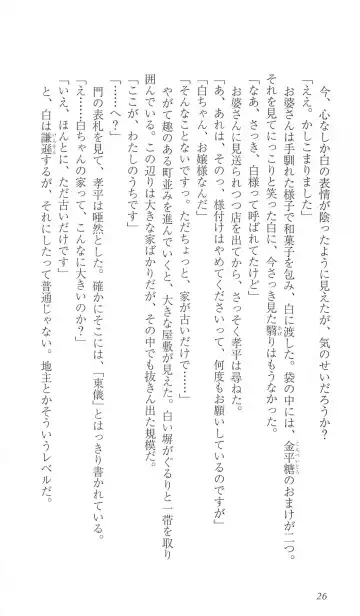 今、心なしか白の表情が陰ったように見えたが、気のせいだろうか?
「ええ。かしこまりました」
お婆さんは手馴れた様子で和菓子を包み、白に渡した。袋の中には、金平糖のおまけが二つ。
それを見てにっこりと笑った白に、今さっき見た翳りはもうなかった。
「なあ、さっき、白様って呼ばれてたけど」
お婆さんに見送られつつ店を出てから、さっそく孝平は尋ねた。
「あ、あれは、そのっ、様付けはやめてくださいって、何度もお願いしているのですが」
「白ちゃん、お嬢様なんだ」
「そんなことないです。ただちょっと、家が古いだけで……」
やがて趣のある町並みを進んでいくと、大きな屋敷が見えた。白い塀がぐるりと一帯を取り
囲んでいる。この辺りは大きな家ばかりだが、その中でも抜きん出た規模だ。
「ここが、わたしのうちです」
「……へ?」
門の表札を見て、孝平は唖然とした。確かにそこには、「東儀」とはっきり書かれている。
「え……白ちゃんの家って、こんなに大きいのか?」
「いえ、ほんとに、ただ古いだけです」
と、白は謙遜するが、それにしたって普通じゃない。地主とかそういうレベルだ。
26